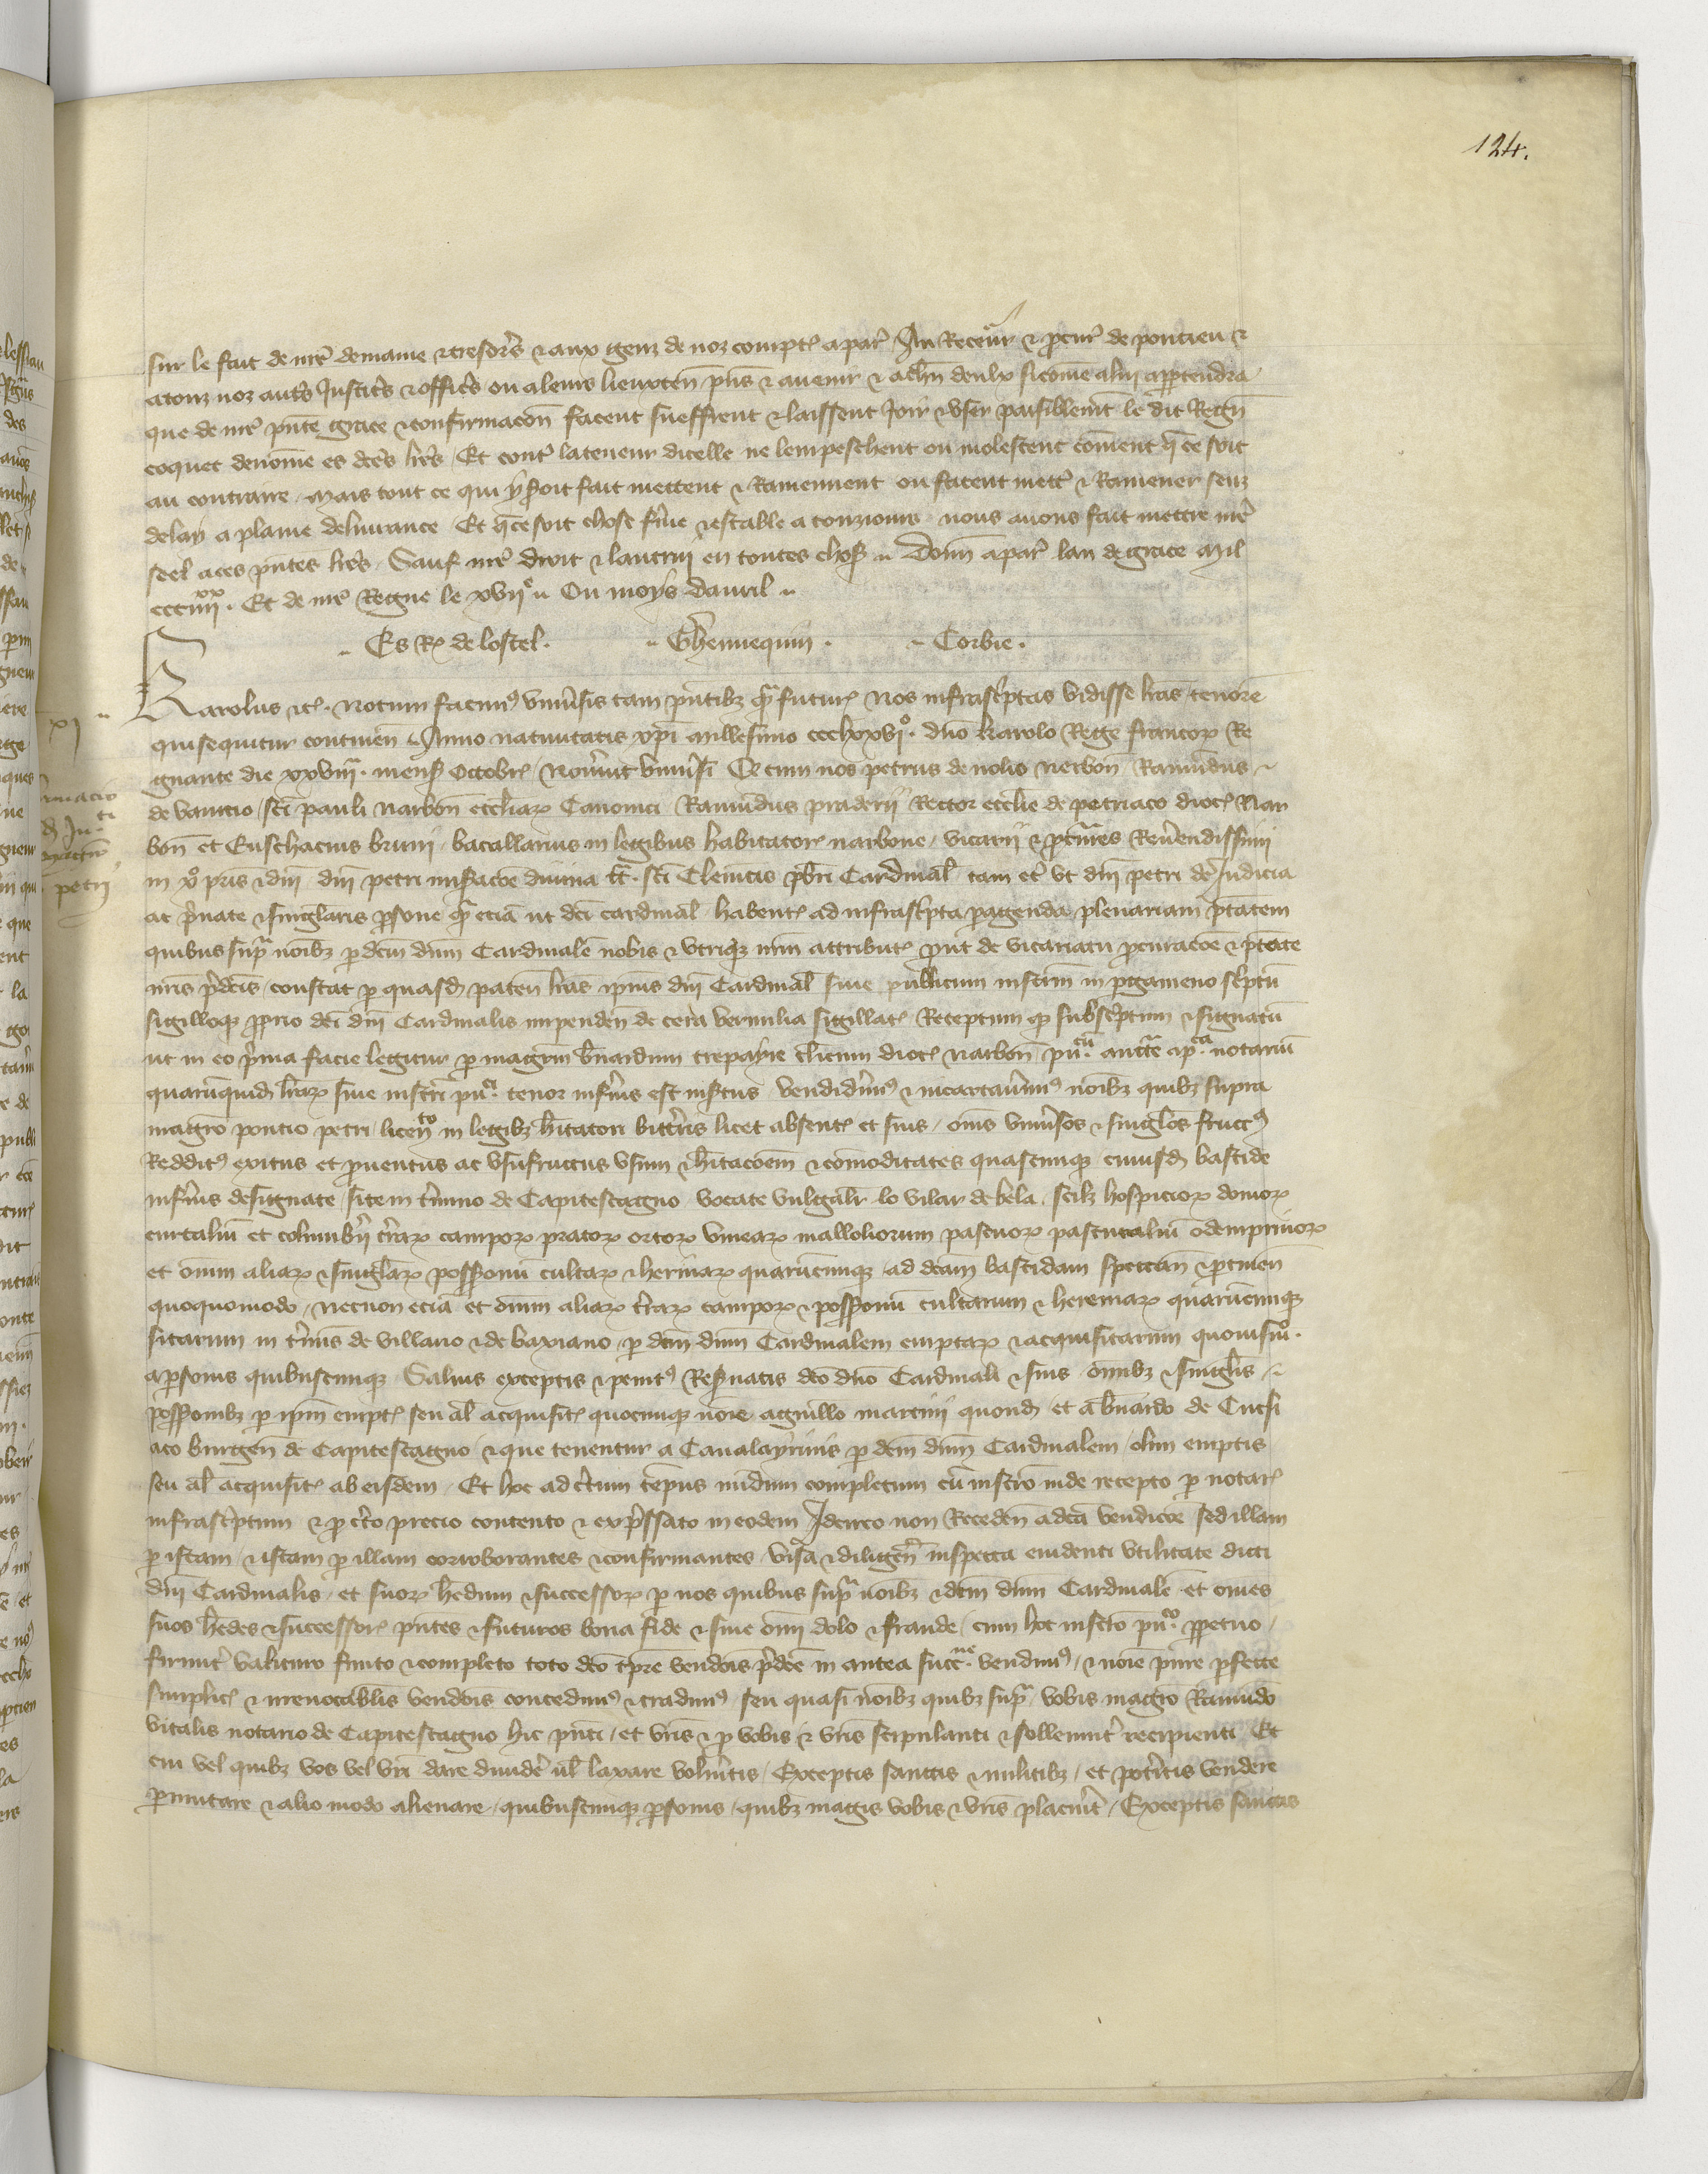 124.
sur le fait de nre demaine & tresors & aux genz de noz comptes a paris Au Receveur & procur de pontieu &
a touz noz autres Justiciers & officiers ou a leurs lieuxten presens & avenir & a chun deulx sicome a lui appartendra
que de nre pnte grace & confirmacon facent sueffrent & laissent Joir & user paisiblemt le dit Regn
coquet denomme es dces lres Et contre la teneur dicelle ne lempeschent ou molestent coment q ce soit
au contraire mais tout ce qui y soit fait mettent & Ramennent ou facent mettre & Ramener senz
delay a plaine delivrance Et q ce soit chose ferme & estable a touzjours nous avons fait mettre nre
seel a ces pntes lres Sauf nre droit & lautrui en toutes choses Donn a paris lan de grace mil
ccc iiiixx. Et de nre Regne le xviie Ou moys davril
Es Rx de lostel. Ghennequin. Corbie.
xi
Karolus etc. Notum facim9 univsis tam pntibz qm futur Nos infrascptas vidisse lras tenore
qui sequitur continen Anno nativitatis xpi millesimo ccclxxvi°. dno Karolo Rege francor Re
gnante die xxviiia. mens Octobr Noverint universi Qe cum nos petrus de nolio nerbon Ramundus
de vancio sci pauli narbon eccliar Canonici Ramundus praderii Rector ecclie de petriaco dioc Nar
bon et Eusthacius bruni bacallarius in legibus habitator narbone vicarii & pcuratores Reverendissimi
in xpo pris & dni dni petri miseracoe divina tt. sci Clemtis pbri Cardinal tam etc ut dni petri de Judicia
ac private & singlaris psone qm etia ut dci cardinal habent ad infrascpta pagenda plenariam ptatem
quibus supra noibz p dcm dnm Cardinale nobis & utriqz nrm attribut put de vicariatu pcuracoe & ptate
nris pdcis constat p quasd paten lras ipius dni Cardinal sive publicum instrm in pgameno scptu
sigilloqz pprio dci dni Cardinalis impenden de cera vermilia sigillat Receptum qz subscptum & signatu
ut in eo prima facie legitur p magrm bnardum trepayre clicum dioc narbon pu.cu auctte ap.ca notariu
quaruquid lrar sive instri pu.ci tenor inferius est insertus vendidim9 & incartavim9 noibz quibz supra
magro pontio petri licen to in legibz hitatori bitteris licet absent et suis oms univsos & singlos fruct9
Reddit9 exitus et pventus ac usufructus usum & hitacoem & comoditates quascumqz eiusd bastide
inferius designate site in tmino de Capitestagno vocate vulgalr lo vilar de bela scilz hospicior domor
curtaliu et columbii trar campor prator ortor vinear malloliorum pascuor pascutaliu & demprivor
et omn aliar & singlar possessionu cultar & hermar quarucumqz ad dcam bastidam spectan & ptinen
quoquomodo necnon ecia et omn aliar trar campor & possessionu cultarum & heremar quarucumqz
sitarum in tminis de villario & de baxiano p dcm dnm Cardinalem emptar & acquisitarum quovismo.
a psonis quibuscumqz Salvis exceptis & penit9 Resvatis dco dno Cardinali & suis omibz & singlis
possessionibz p ipm empt seu al acquisit quocumqz noie agnillo martini quond et a bnardo de Cucsi
aco burgen de Capitestagno & que tenentur a Cavalayrinis p dcm dnm Cardinalem olim emptis
seu al acquisit ab eisdem Et hoc ad certum tepus nundum completum cu instro inde recepto p notar
infrascptum & p certo precio contento & expressato in eodem Idcirco non Receden a dca vendicoe sed illam
p istam & istam p illam corroborantes & confirmantes visa & diligent inspecta evidenti utilitate dicti
dni Cardinalis et suor hedum & successor p nos quibus supra noibz & dcm dnm Cardinale et omes
suos hedes & successor pntes & futuros bona fide & sine omi dolo & fraude cum hoc instro pu.co ppetuo
firmit valituro finito & completo toto dco tpre vendois pdce in antea succ.ue vendim9 & noie pure pfecte
simplic & irrevocablis vendois concedim9 & tradim9 seu quasi noibz quibz supra vobis magro Ramudo
vitalis notario de Capitestagno hic pnti et vris & p vobis & vris stipulanti & sollemnit recipienti Et
cui vel quibz vos vel vri dare divide vl laxare volueritis Exceptis sanctis & militibz et poteritis vendere
pmutare & alio modo alienare quibuscumqz psonis quibz magis vobis & vris placuit Exceptis sanctis